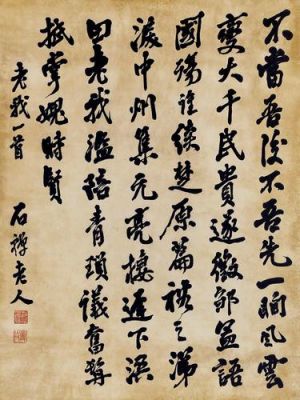 不當吾後不吾先一晌風雲
變大千民貴遂徵鄒孟語
國殤誰續楚原篇裕之涕
淚中州集元亮棲遲下潠
田老我濫陪青瑣議奮髯
抵掌媿時賢
老我一首
石禪老人